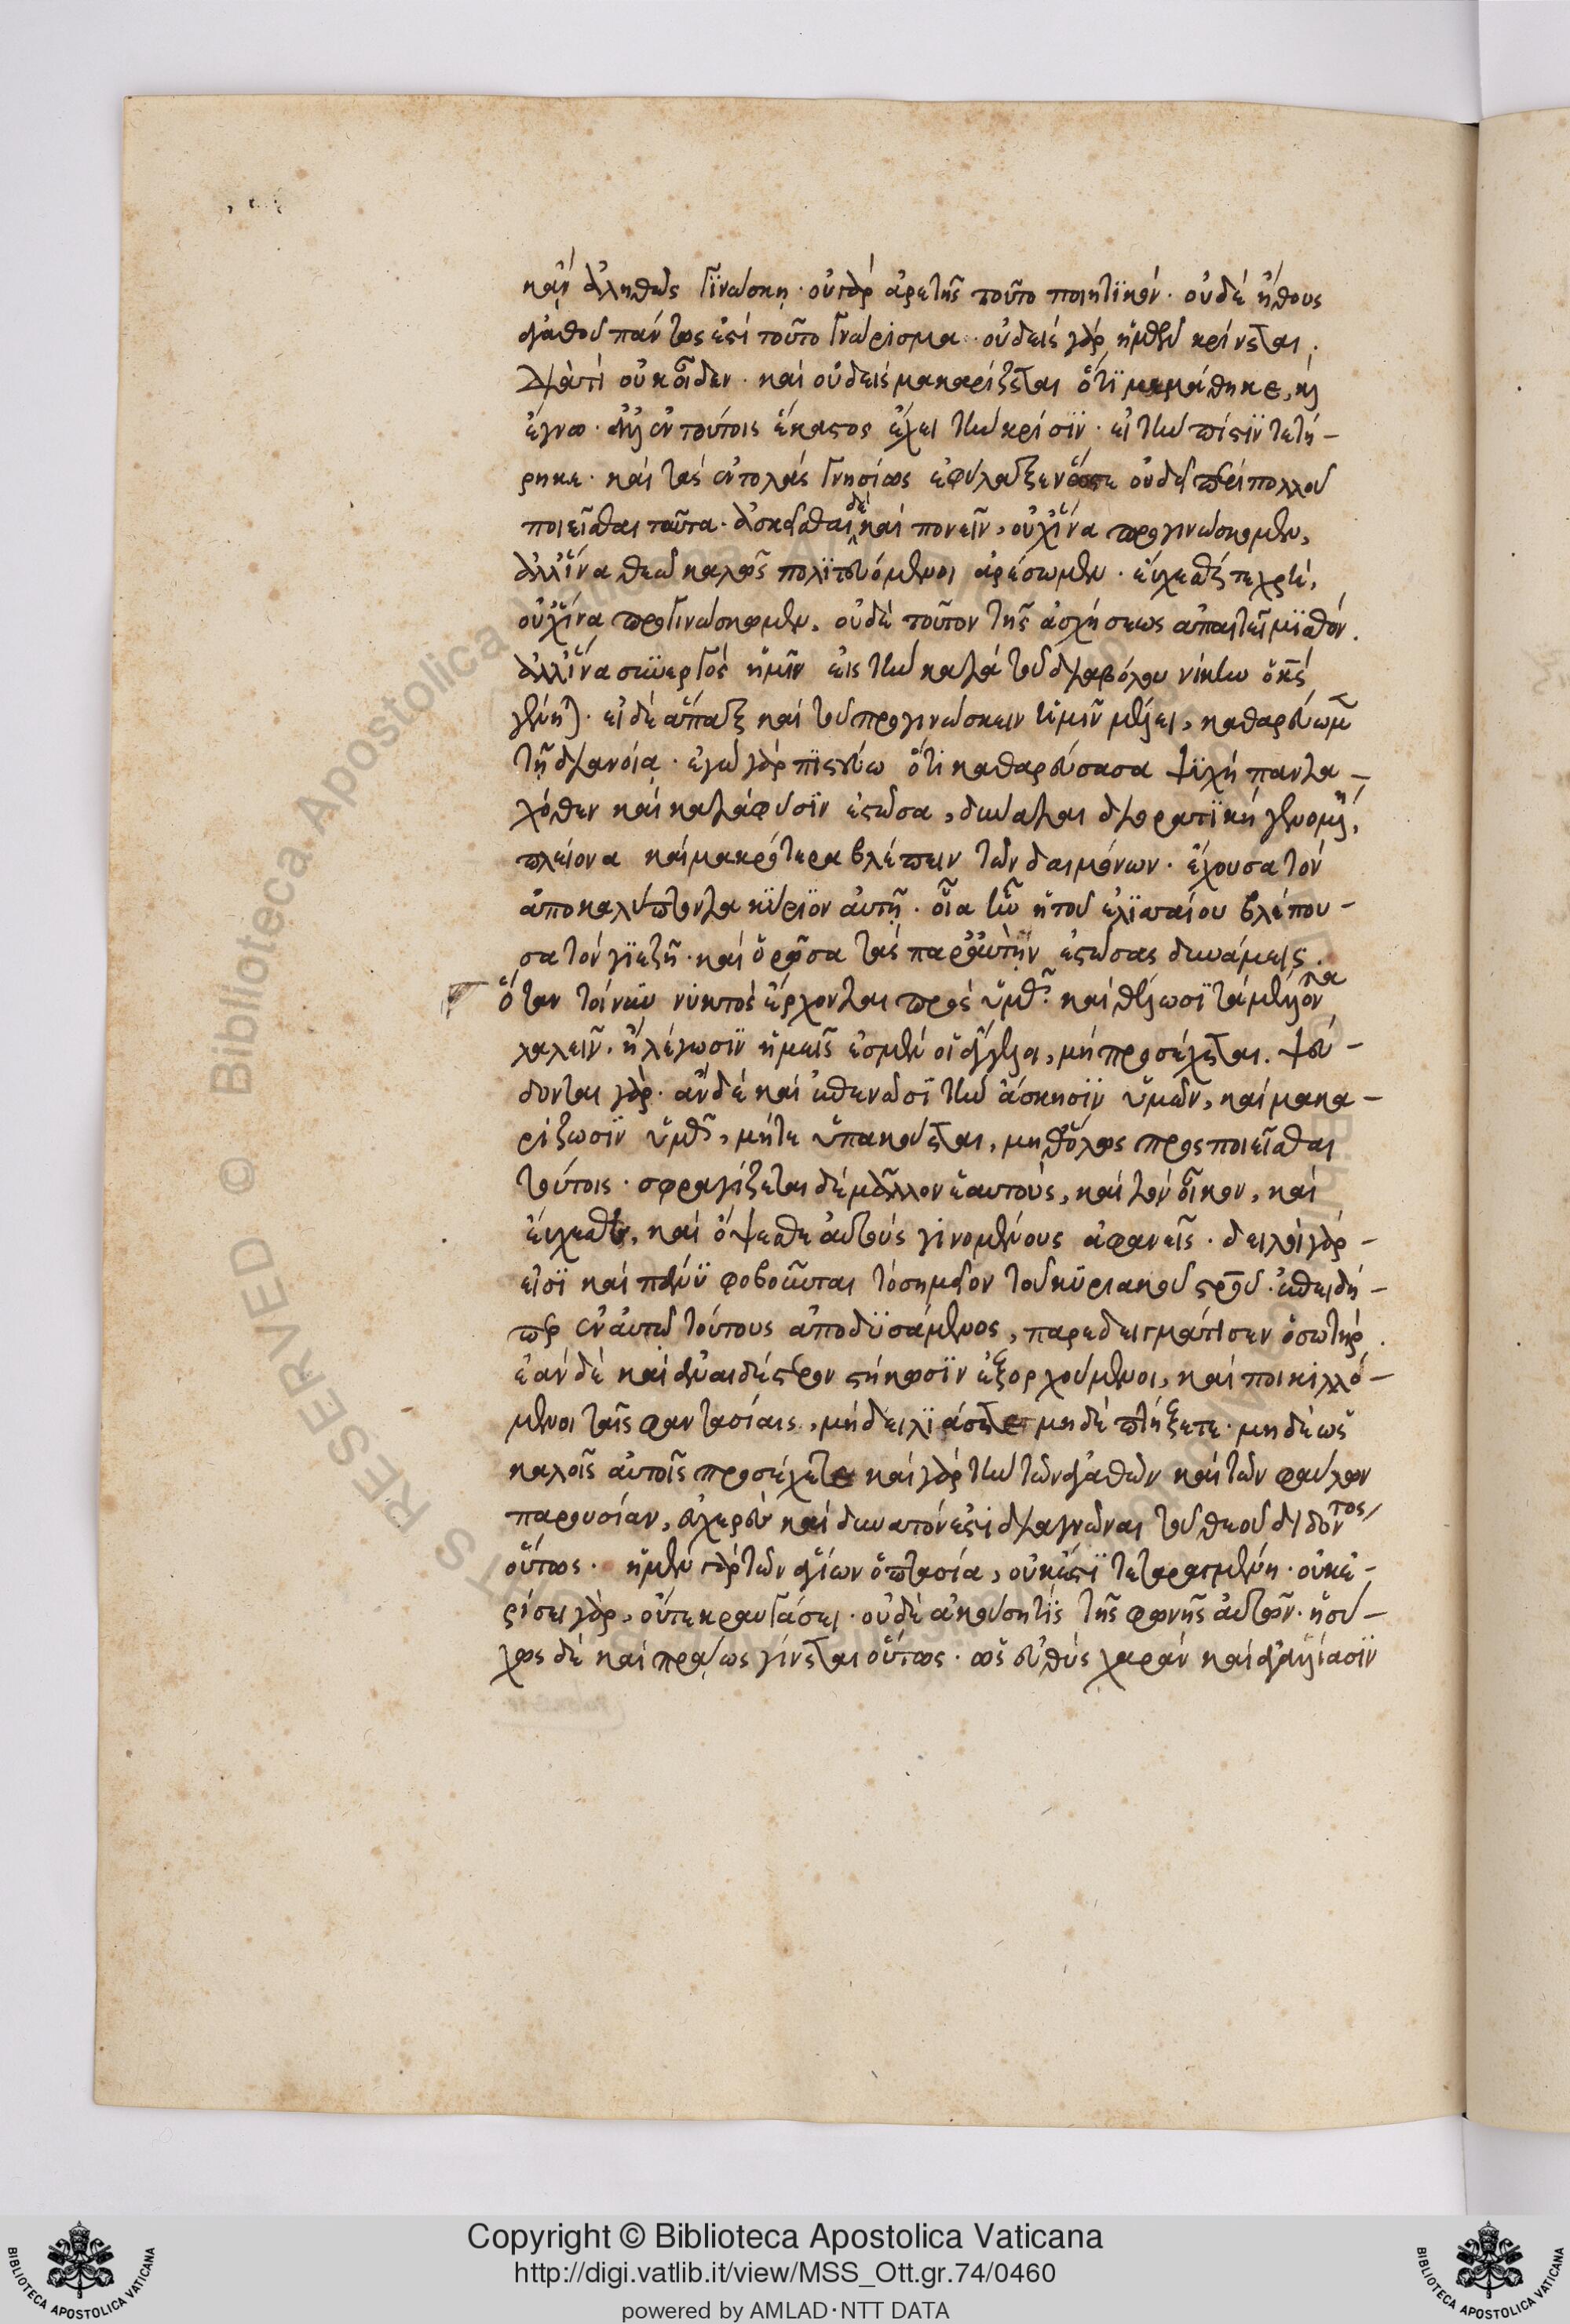 κἂν ἀληθῶς γϊνώσκῃ· οὐ γὰρ ἀρετῆς τοῦτο ποιητϊκόν· οὐδὲ ἤθους
ἀγαθοῦ πάντως ἐστὶ τοῦτο γνώρισμα· οὐδεὶς γὰρ ἡμῶν κρίνεται,
διὰ τί οὐκ οἶδεν· καὶ οὐδεὶς μακαρίζεται ὅτϊ μεμάθηκε, καὶ
ἔγνω· ἀλλ' ἐν τούτοις ἕκαστος ἔχει τὴν κρίσϊν· εἰ τὴν πίστϊν τετή-
ρηκε· καὶ τὰς ἐντολὰς γνησίως ἐφύλαξεν ὥστε οὐ δεῖ περὶ πολλοῦ
ποιεῖσθαι ταῦτα· ἀσκεῖσθαι δὲ καὶ πονεῖν, οὐχ ἵνα προγινώσκομεν,
ἀλλ' ἵνα θεῷ καλῶς πολϊτευόμενοι ἀρέσωμεν· εὔχεσθαί τε χρὴ,
οὐχ ἵνα προγινώσκομεν, οὐδὲ τοῦτον τῆς ἀσκήσεως ἀπαιτεῖν μϊσθόν.
ἀλλ' ἵνα συνεργὸς ἡμῖν εἰς τὴν κατὰ τοῦ διαβόλου νίκην ὁ κς
γένηται· εἰ δὲ ἅπαξ καὶ τοῦ προγινώσκειν ἡμῖν μέλει, καθαρεύωμεν
τῇ διανοίᾳ· ἐγὼ γὰρ πϊστεύω ὅτι καθαρεύσασα ψϋχὴ παντα-
χόθεν καὶ κατὰ φύσϊν ἑστῶσα, δύναται διορατϊκὴ γενομένη,
πλείονα καὶ μακρότερα βλέπειν τῶν δαιμόνων· ἔχουσα τὸν
ἀποκαλύπτοντα κύριον αὐτῇ· οἵα ἦν ἡ τοῦ ἐλϊσσαίου βλέπου-
σα τὸν γϊεζῆ· καὶ ὁρῶσα τὰς παρ' αὐτὴν ἑστώσας δυνάμεις.
ὅταν τοίνυν νυκτὸς ἔρχονται πρὸς ὑμᾶς καὶ θέλωσϊ τὰ μέλλοντα
λαλεῖν· ἢ λέγωσϊν ἡμεῖς ἐσμὲν οἱ ἄγγελοι, μὴ προσέχεται· ψεύ-
δονται γάρ· ἂν δὲ καὶ ἐπαινῶσϊ τὴν ἄσκησϊν ὑμῶν, καὶ μακα-
ρίζωσϊν ὑμᾶς, μήτε ὑπακούεται, μηδ' ὅλως προςποιεῖσθαι
τούτοις· σφραγίζεται δὲ μᾶλλον ἑαυτούς, καὶ τὸν οἶκον, καὶ
εὔχεσθε, καὶ ὄψεσθε αὐτοὺς γινομένους ἀφανεῖς· δειλοὶ γάρ-
εἰσϊ καὶ πάνϋ φοβοῦνται τὸ σημεῖον τοῦ κυριακοῦ στρου· ἐπειδή-
περ ἐν αὐτῷ τούτους ἀποδϋσάμενος, παρεδειγμάτισεν ὁ σωτήρ.
ἐὰν δὲ καὶ ἀναιδέστερον στήκωσϊν ἐξορχούμενοι, καὶ ποικιλλό-
μενοι ταῖς φαντασίαις, μὴ δειλϊάσετε μηδὲ πτήξετε· μηδὲ ὡς
καλοῖς αὐτοῖς προσέχετε καὶ γὰρ τὴν τῶν ἀγαθῶν καὶ τῶν φαύλων
παρουσίαν, εὐχερὲς καὶ δυνατόν ἐστι διαγνῶναι τοῦ θεοῦ διδόντος
οὕτως· ἡ μὲν γὰρ τῶν ἁγίων ὀπτασία, οὐκ ἔστϊ τεταραγμένη· οὐκ ἐ-
ρίσει γάρ, οὔτε κραυγάσει· οὐδὲ ἀκούσῃ τϊς τῆς φωνῆς αὐτῶν· ἡσύ-
χως δὲ καὶ πράως γίνεται οὕτως· ὡς εὐθὺς χαρὰν καὶ ἀγαλλίασϊν
© Biblioteca Apostolica Vaticana
ALL RIGHTS RESERVED
Copyright © Biblioteca Apostolica Vaticana
http://digi.vatlib.it/view/MSS_Ott.gr.74/0460
powered by AMLAD·NTT DATA
BIBLIOTECA APOSTOLICA VATICANA
BIBLIOTECA APOSTOLICA VATICANA